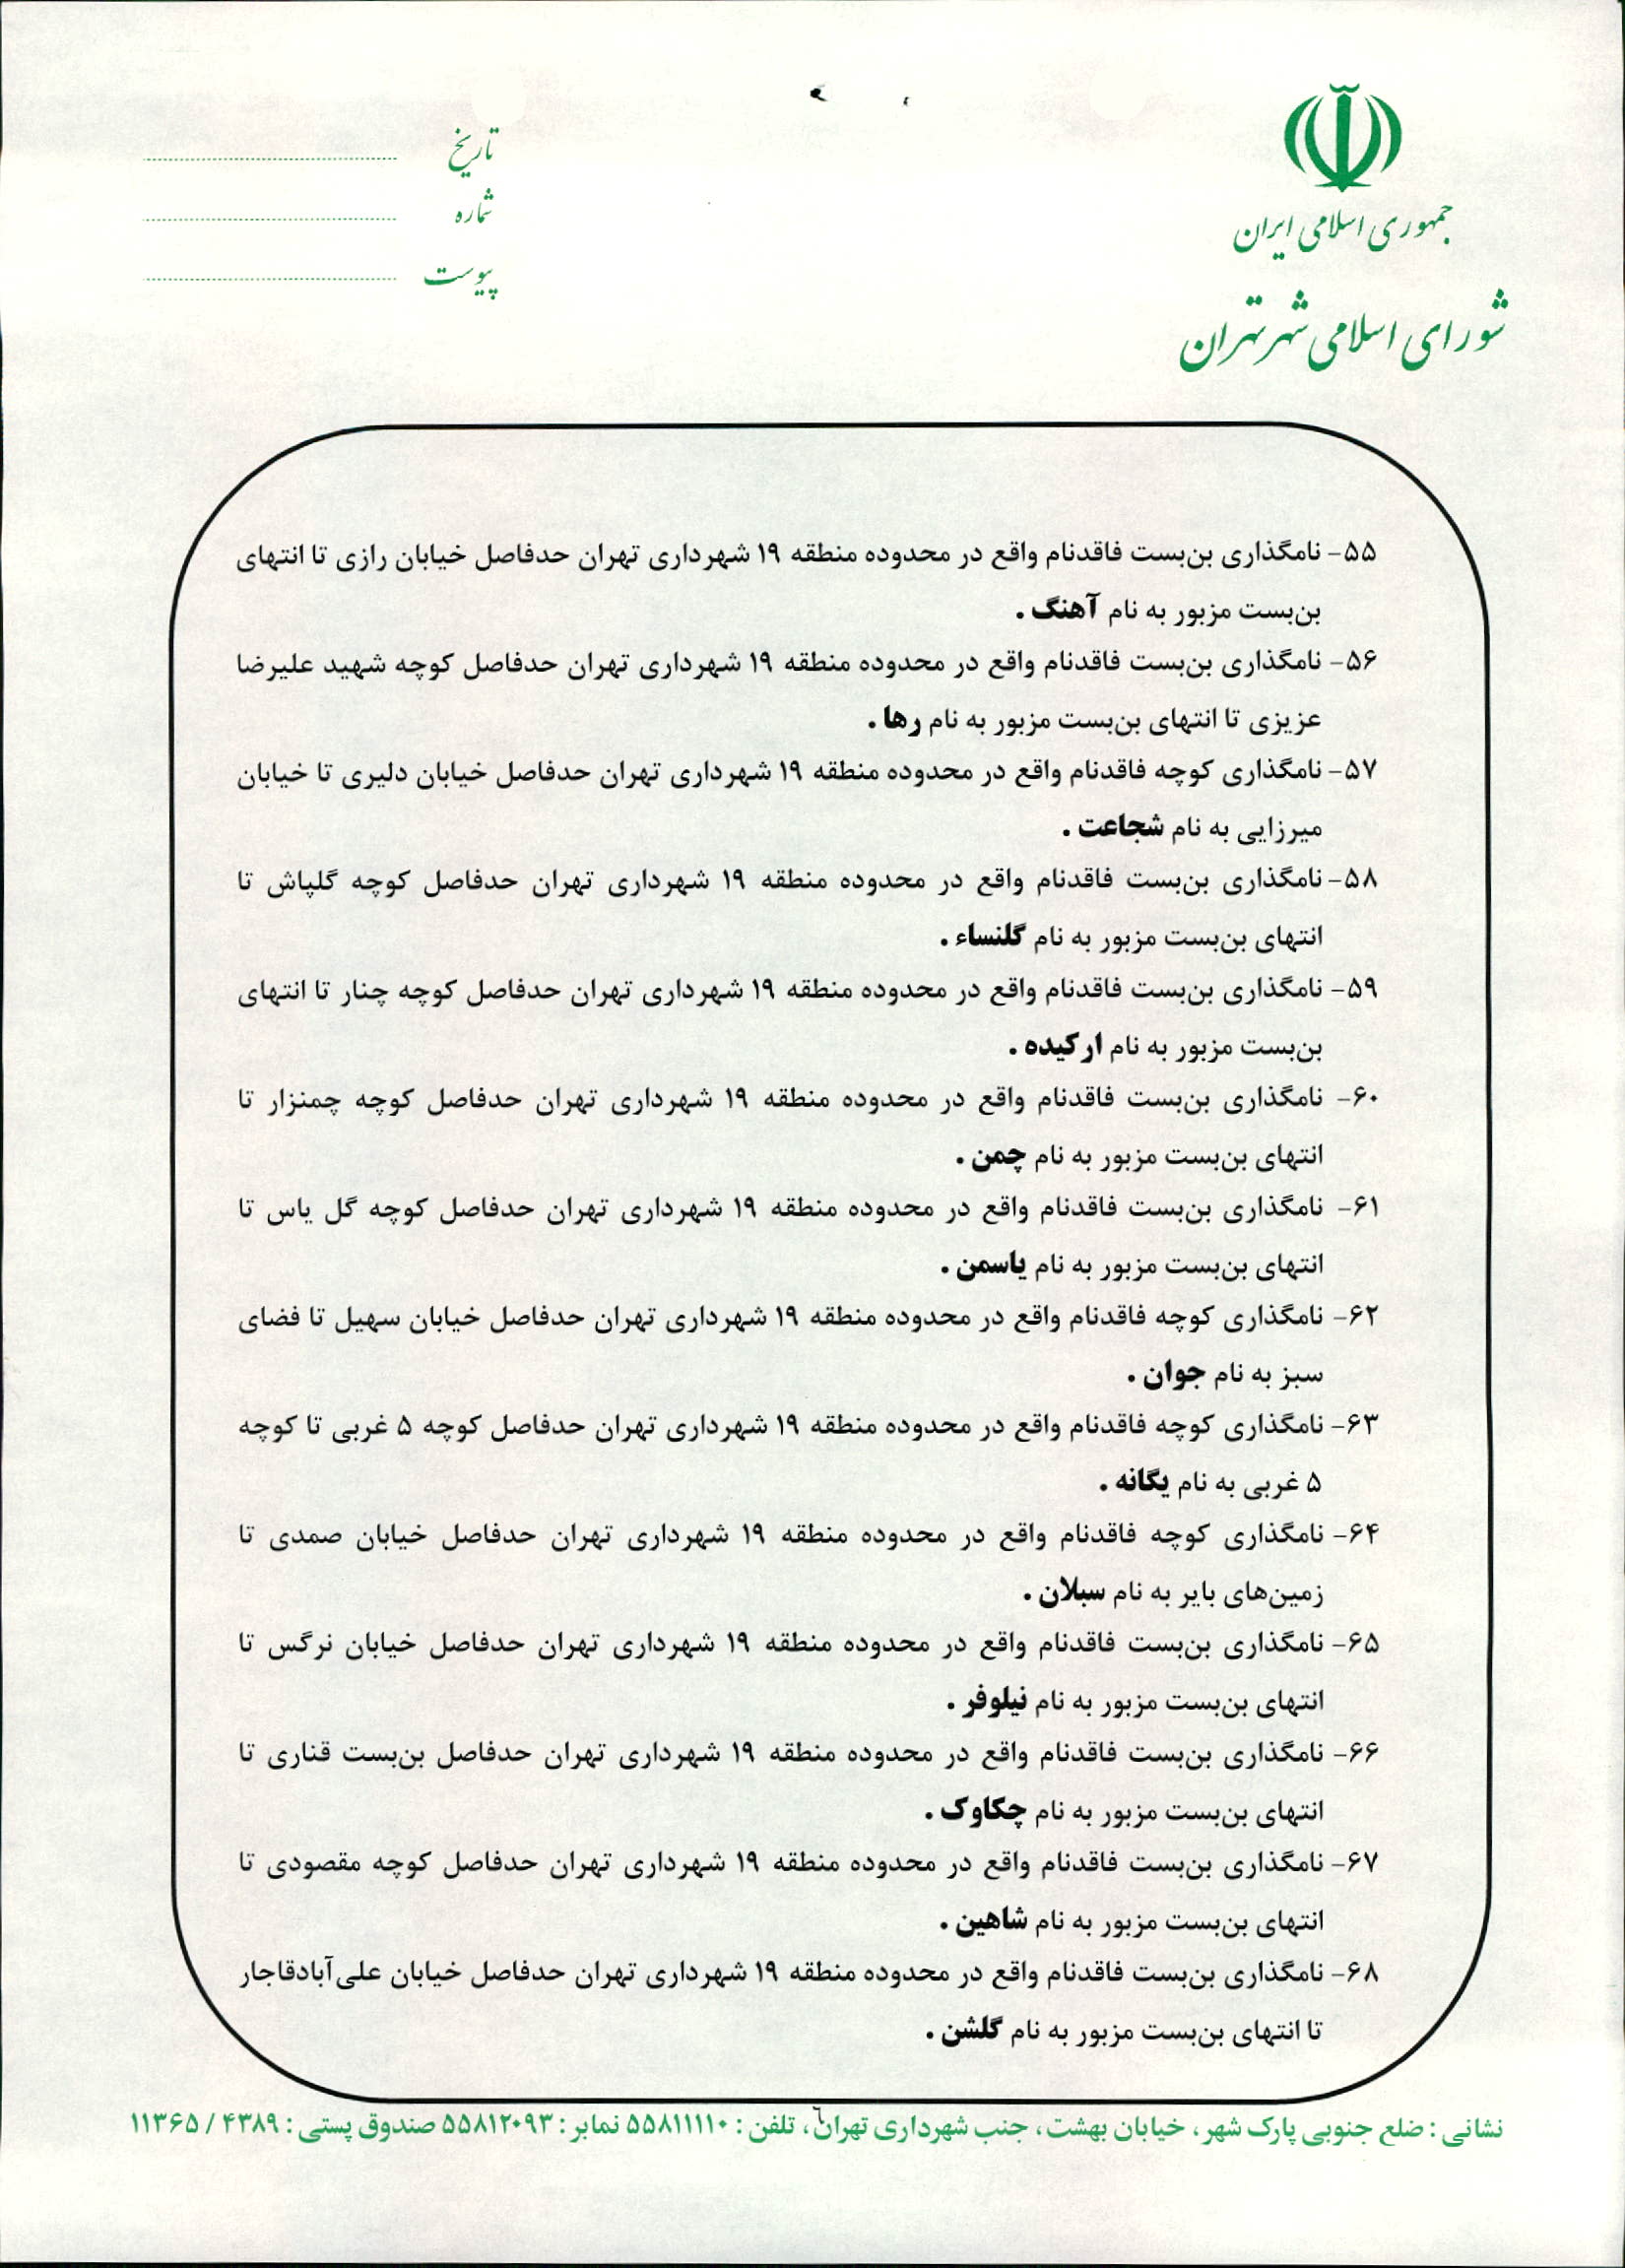 جمهوری اسلامی ایران
شورای اسلامی شهر تهران
تاریخ
شماره
پیوست
۵۵- نامگذاری بن‌بست فاقدنام واقع در محدوده منطقه ۱۹ شهرداری تهران حدفاصل خیابان رازی تا انتهای
بن‌بست مزبور به نام آهنگ .
۵۶- نامگذاری بن‌بست فاقدنام واقع در محدوده منطقه ۱۹ شهرداری تهران حدفاصل کوچه شهید علیرضا
عزیزی تا انتهای بن‌بست مزبور به نام رها .
۵۷- نامگذاری کوچه فاقدنام واقع در محدوده منطقه ۱۹ شهرداری تهران حدفاصل خیابان دلیری تا خیابان
میرزایی به نام شجاعت .
۵۸- نامگذاری بن‌بست فاقدنام واقع در محدوده منطقه ۱۹ شهرداری تهران حدفاصل کوچه گلپاش تا
انتهای بن‌بست مزبور به نام گلنساء .
۵۹- نامگذاری بن‌بست فاقدنام واقع در محدوده منطقه ۱۹ شهرداری تهران حدفاصل کوچه چنار تا انتهای
بن‌بست مزبور به نام ارکیده .
۶۰- نامگذاری بن‌بست فاقدنام واقع در محدوده منطقه ۱۹ شهرداری تهران حدفاصل کوچه چمنزار تا
انتهای بن‌بست مزبور به نام چمن .
۶۱- نامگذاری بن‌بست فاقدنام واقع در محدوده منطقه ۱۹ شهرداری تهران حدفاصل کوچه گل یاس تا
انتهای بن‌بست مزبور به نام یاسمن .
۶۲- نامگذاری کوچه فاقدنام واقع در محدوده منطقه ۱۹ شهرداری تهران حدفاصل خیابان سهیل تا فضای
سبز به نام جوان .
۶۳- نامگذاری کوچه فاقدنام واقع در محدوده منطقه ۱۹ شهرداری تهران حدفاصل کوچه ۵ غربی تا کوچه
۵ غربی به نام یگانه .
۶۴- نامگذاری کوچه فاقدنام واقع در محدوده منطقه ۱۹ شهرداری تهران حدفاصل خیابان صمدی تا
زمین‌های بایر به نام سبلان .
۶۵- نامگذاری بن‌بست فاقدنام واقع در محدوده منطقه ۱۹ شهرداری تهران حدفاصل خیابان نرگس تا
انتهای بن‌بست مزبور به نام نیلوفر .
۶۶- نامگذاری بن‌بست فاقدنام واقع در محدوده منطقه ۱۹ شهرداری تهران حدفاصل بن‌بست قناری تا
انتهای بن‌بست مزبور به نام چکاوک .
۶۷- نامگذاری بن‌بست فاقدنام واقع در محدوده منطقه ۱۹ شهرداری تهران حدفاصل کوچه مقصودی تا
انتهای بن‌بست مزبور به نام شاهین .
۶۸- نامگذاری بن‌بست فاقدنام واقع در محدوده منطقه ۱۹ شهرداری تهران حدفاصل خیابان علی‌آبادقاجار
تا انتهای بن‌بست مزبور به نام گلشن .
٦
نشانی : ضلع جنوبی پارک شهر ، خیابان بهشت ، جنب شهرداری تهران ، تلفن : ۵۵۸۱۱۱۱۰ نمابر : ۵۵۸۱۲۰۹۳ صندوق پستی : ۴۳۸۹ / ۱۱۳۶۵